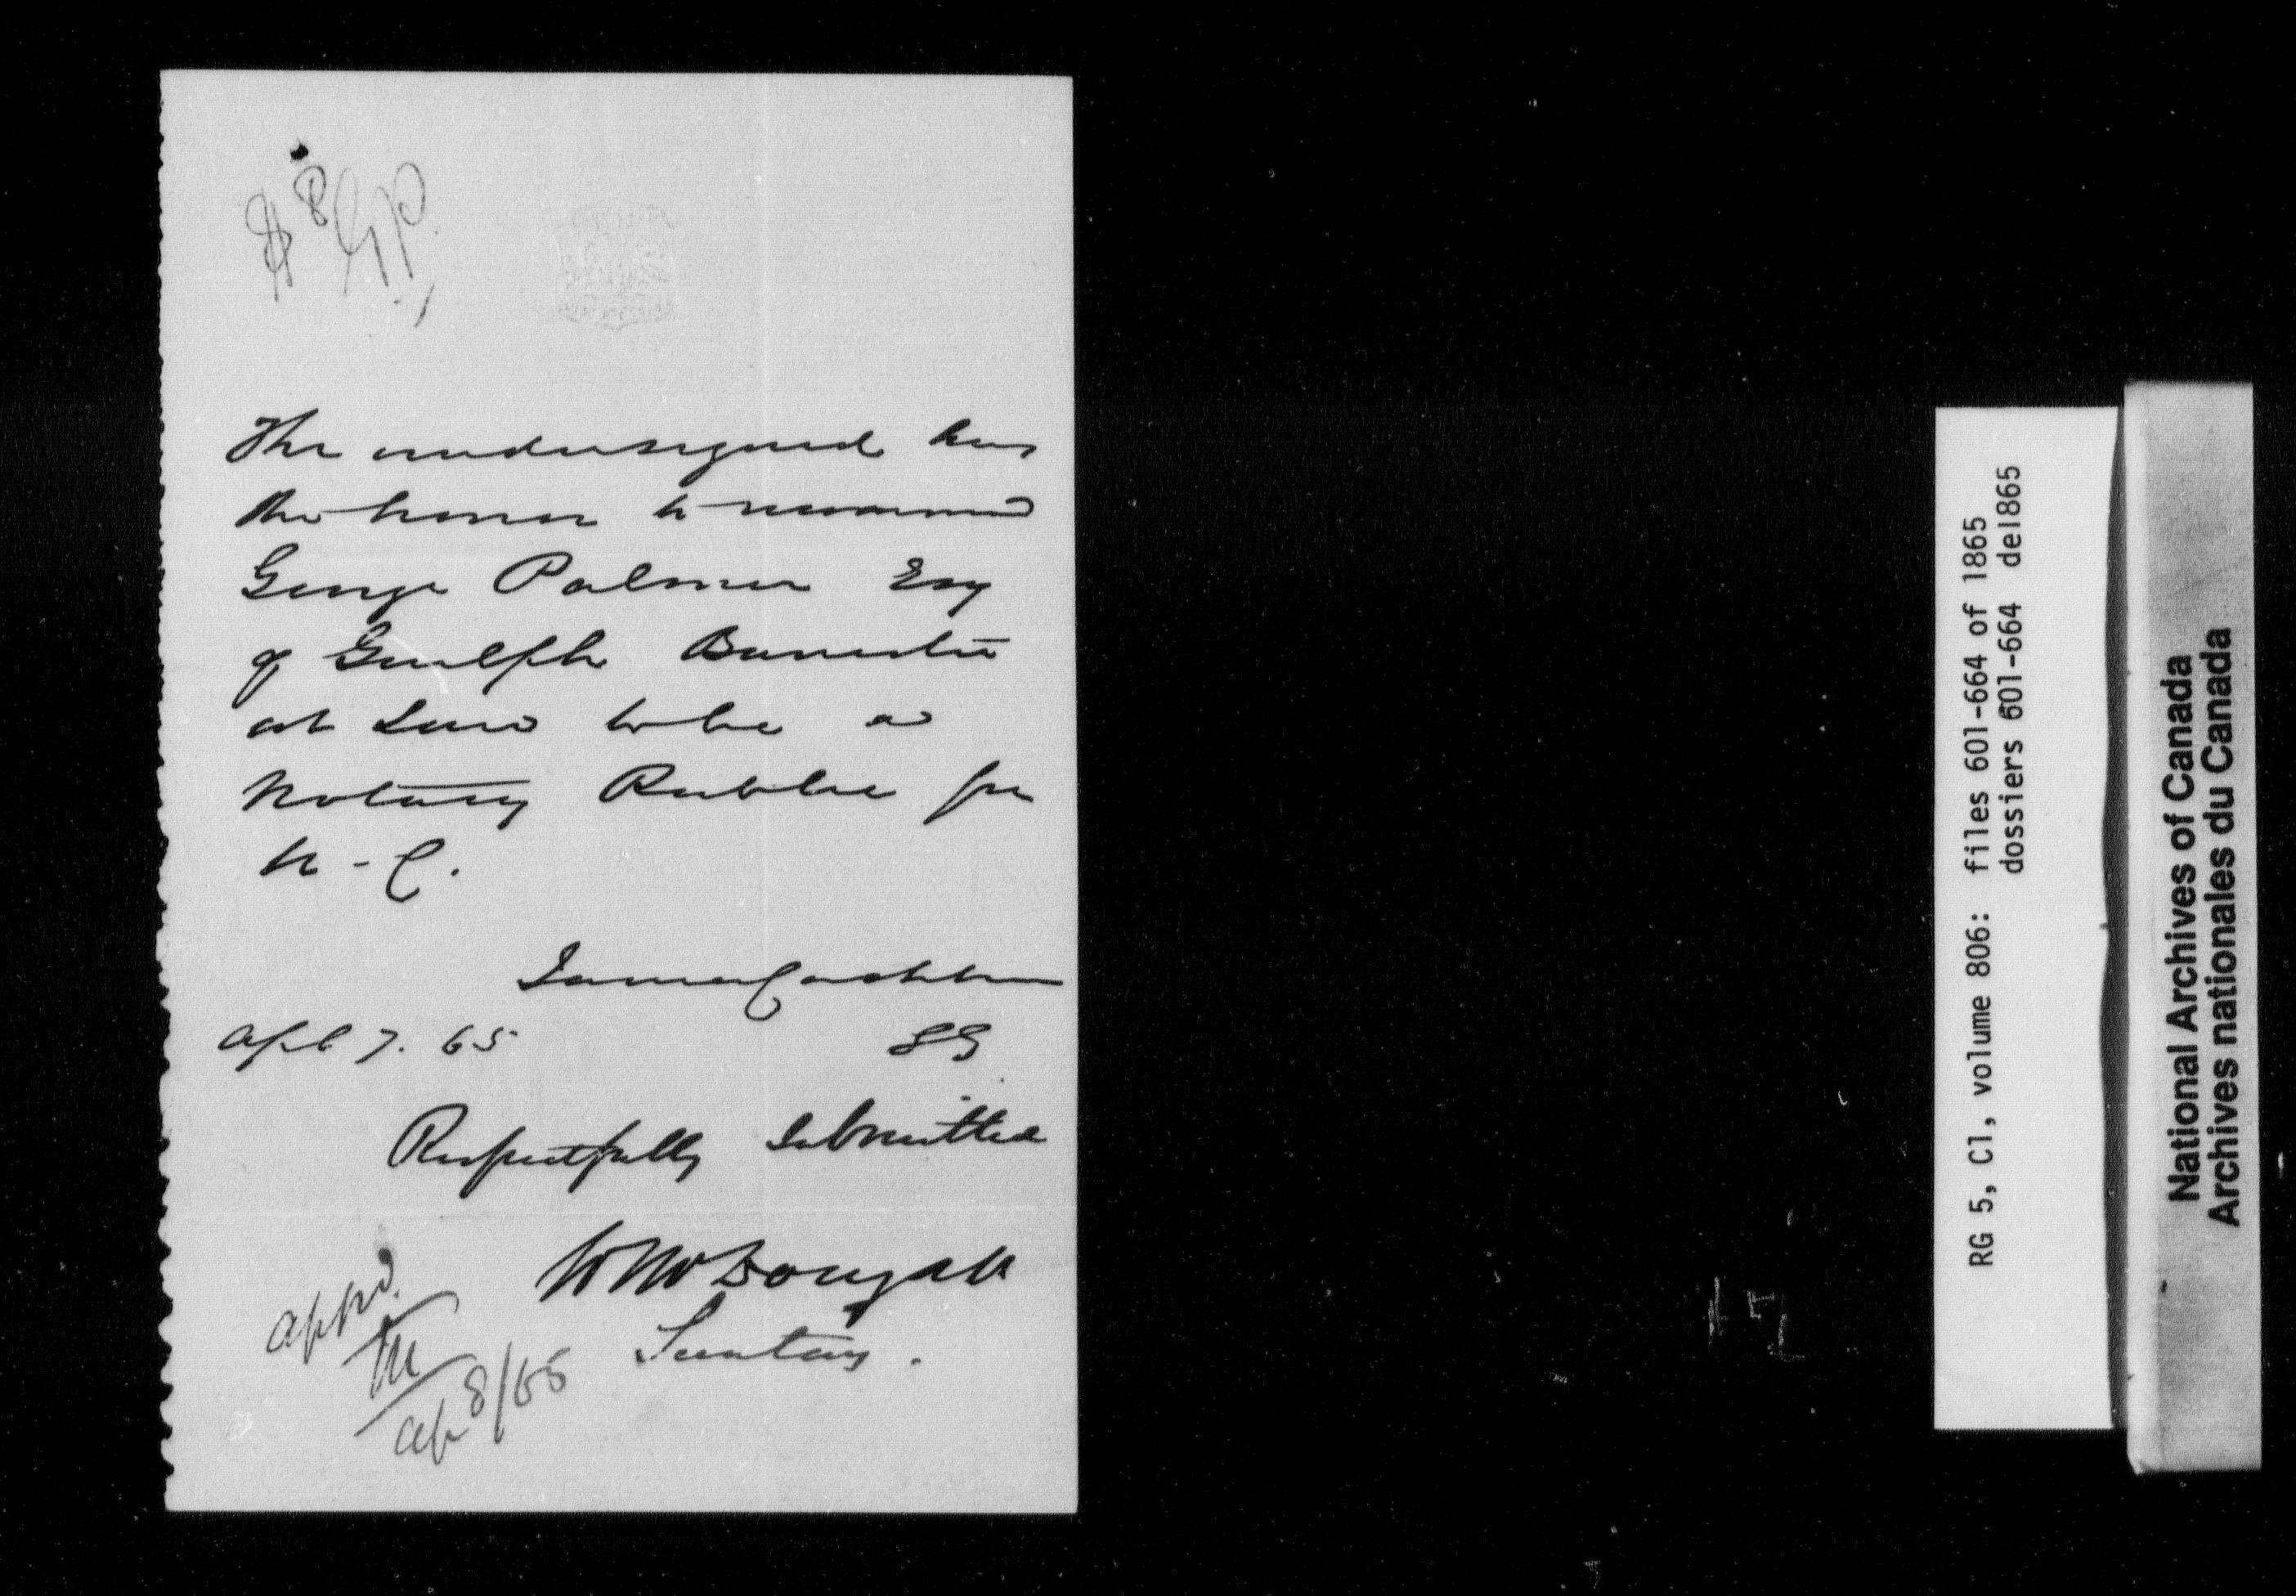 $8
G P.
The undersigned has
the honor to recommend
George Palmer Esq
of Guelph Barrister
at Law to be a
Notary Public for
U-C.
James Cockburn
Apl 7. 65
SG
Respectfully Submitted
W McDougall
Secretary.
Appd.
M
Ap 8/65
RG 5, C1, volume 806: files 601-664 of 1865
dossiers 601-664 de1865
National Archives of Canada
Archives nationales du Canada